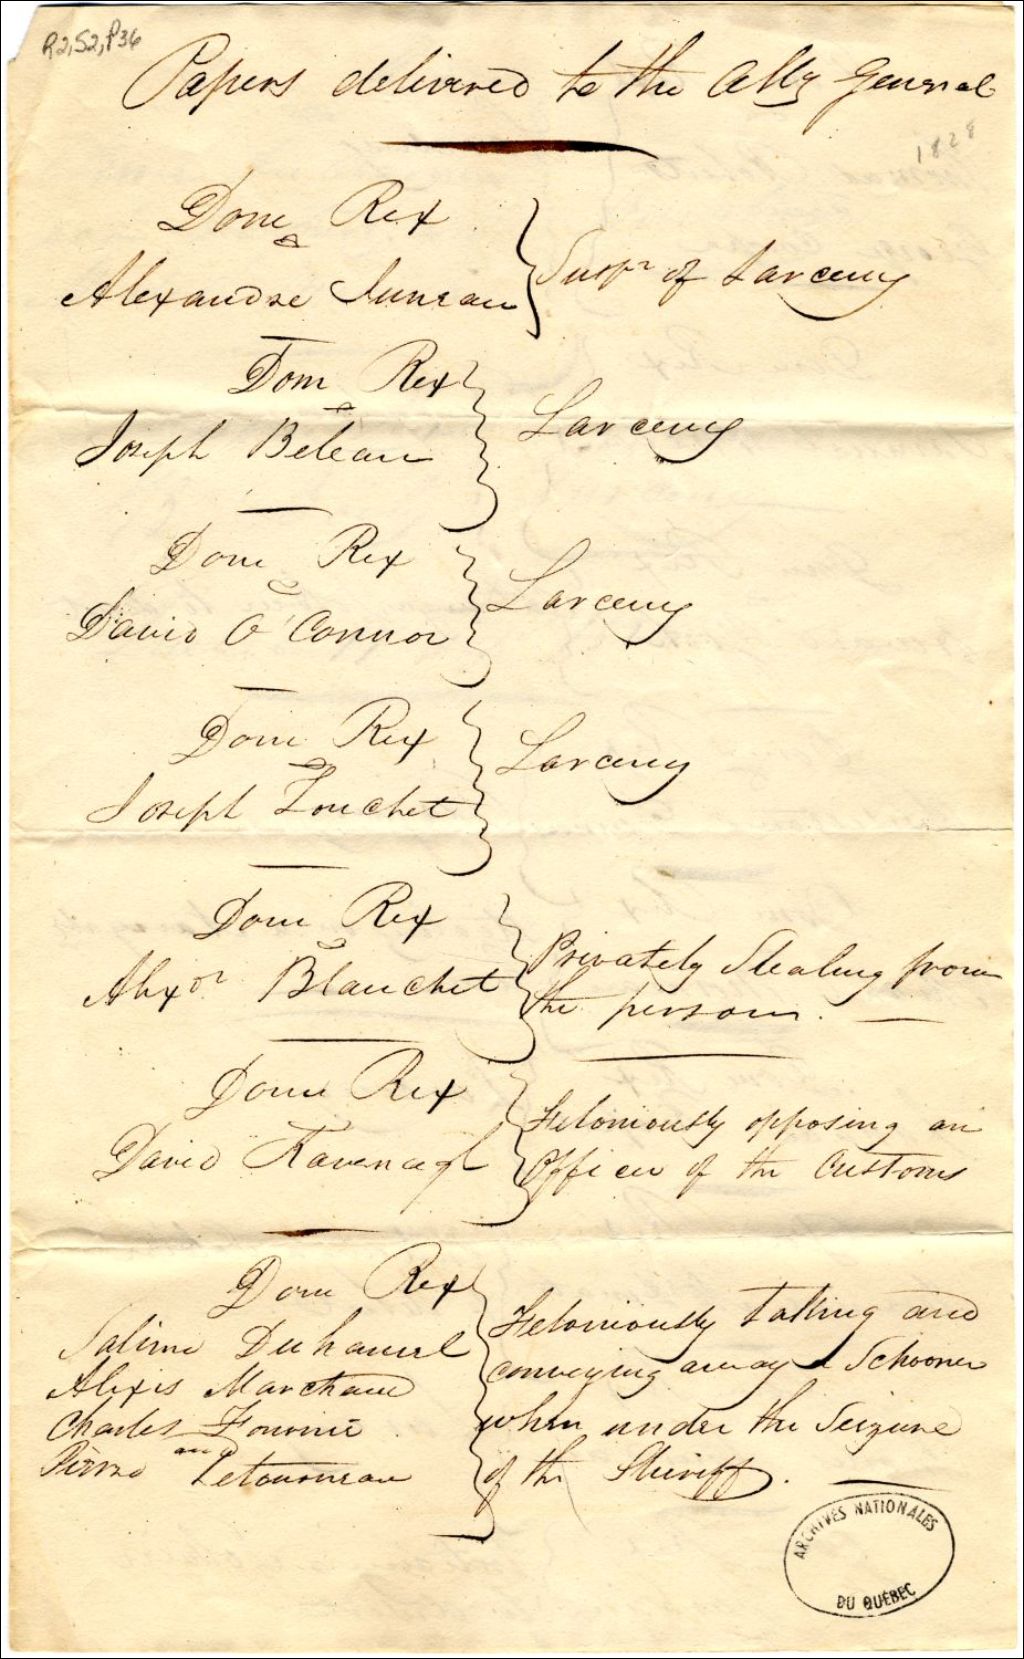 R2,S2,P36
Papers delivered to the Atty General
1828
Dom Rex
&
Alexandre Juneau
Suspn of Larceny
Dom Rex
Joseph Beleau
Larceny
Dom Rex
David O'Connor
Larceny
Dom Rex
Joseph Touchet
Larceny
Dom Rex
Alexdr Blanchet
Privately Stealing from
the person.
Dom Rex
David Kavenagh
Feloniously opposing an
Officer of the Customs
Dom Rex
Duhamel
Alexis Marchand
Charles
Pierre and Letourneau
Feloniously taking and
conveying away a Schooner
when under the Seizure
of the Sheriff.
ARCHIVES NATIONALES
DU QUÉBEC